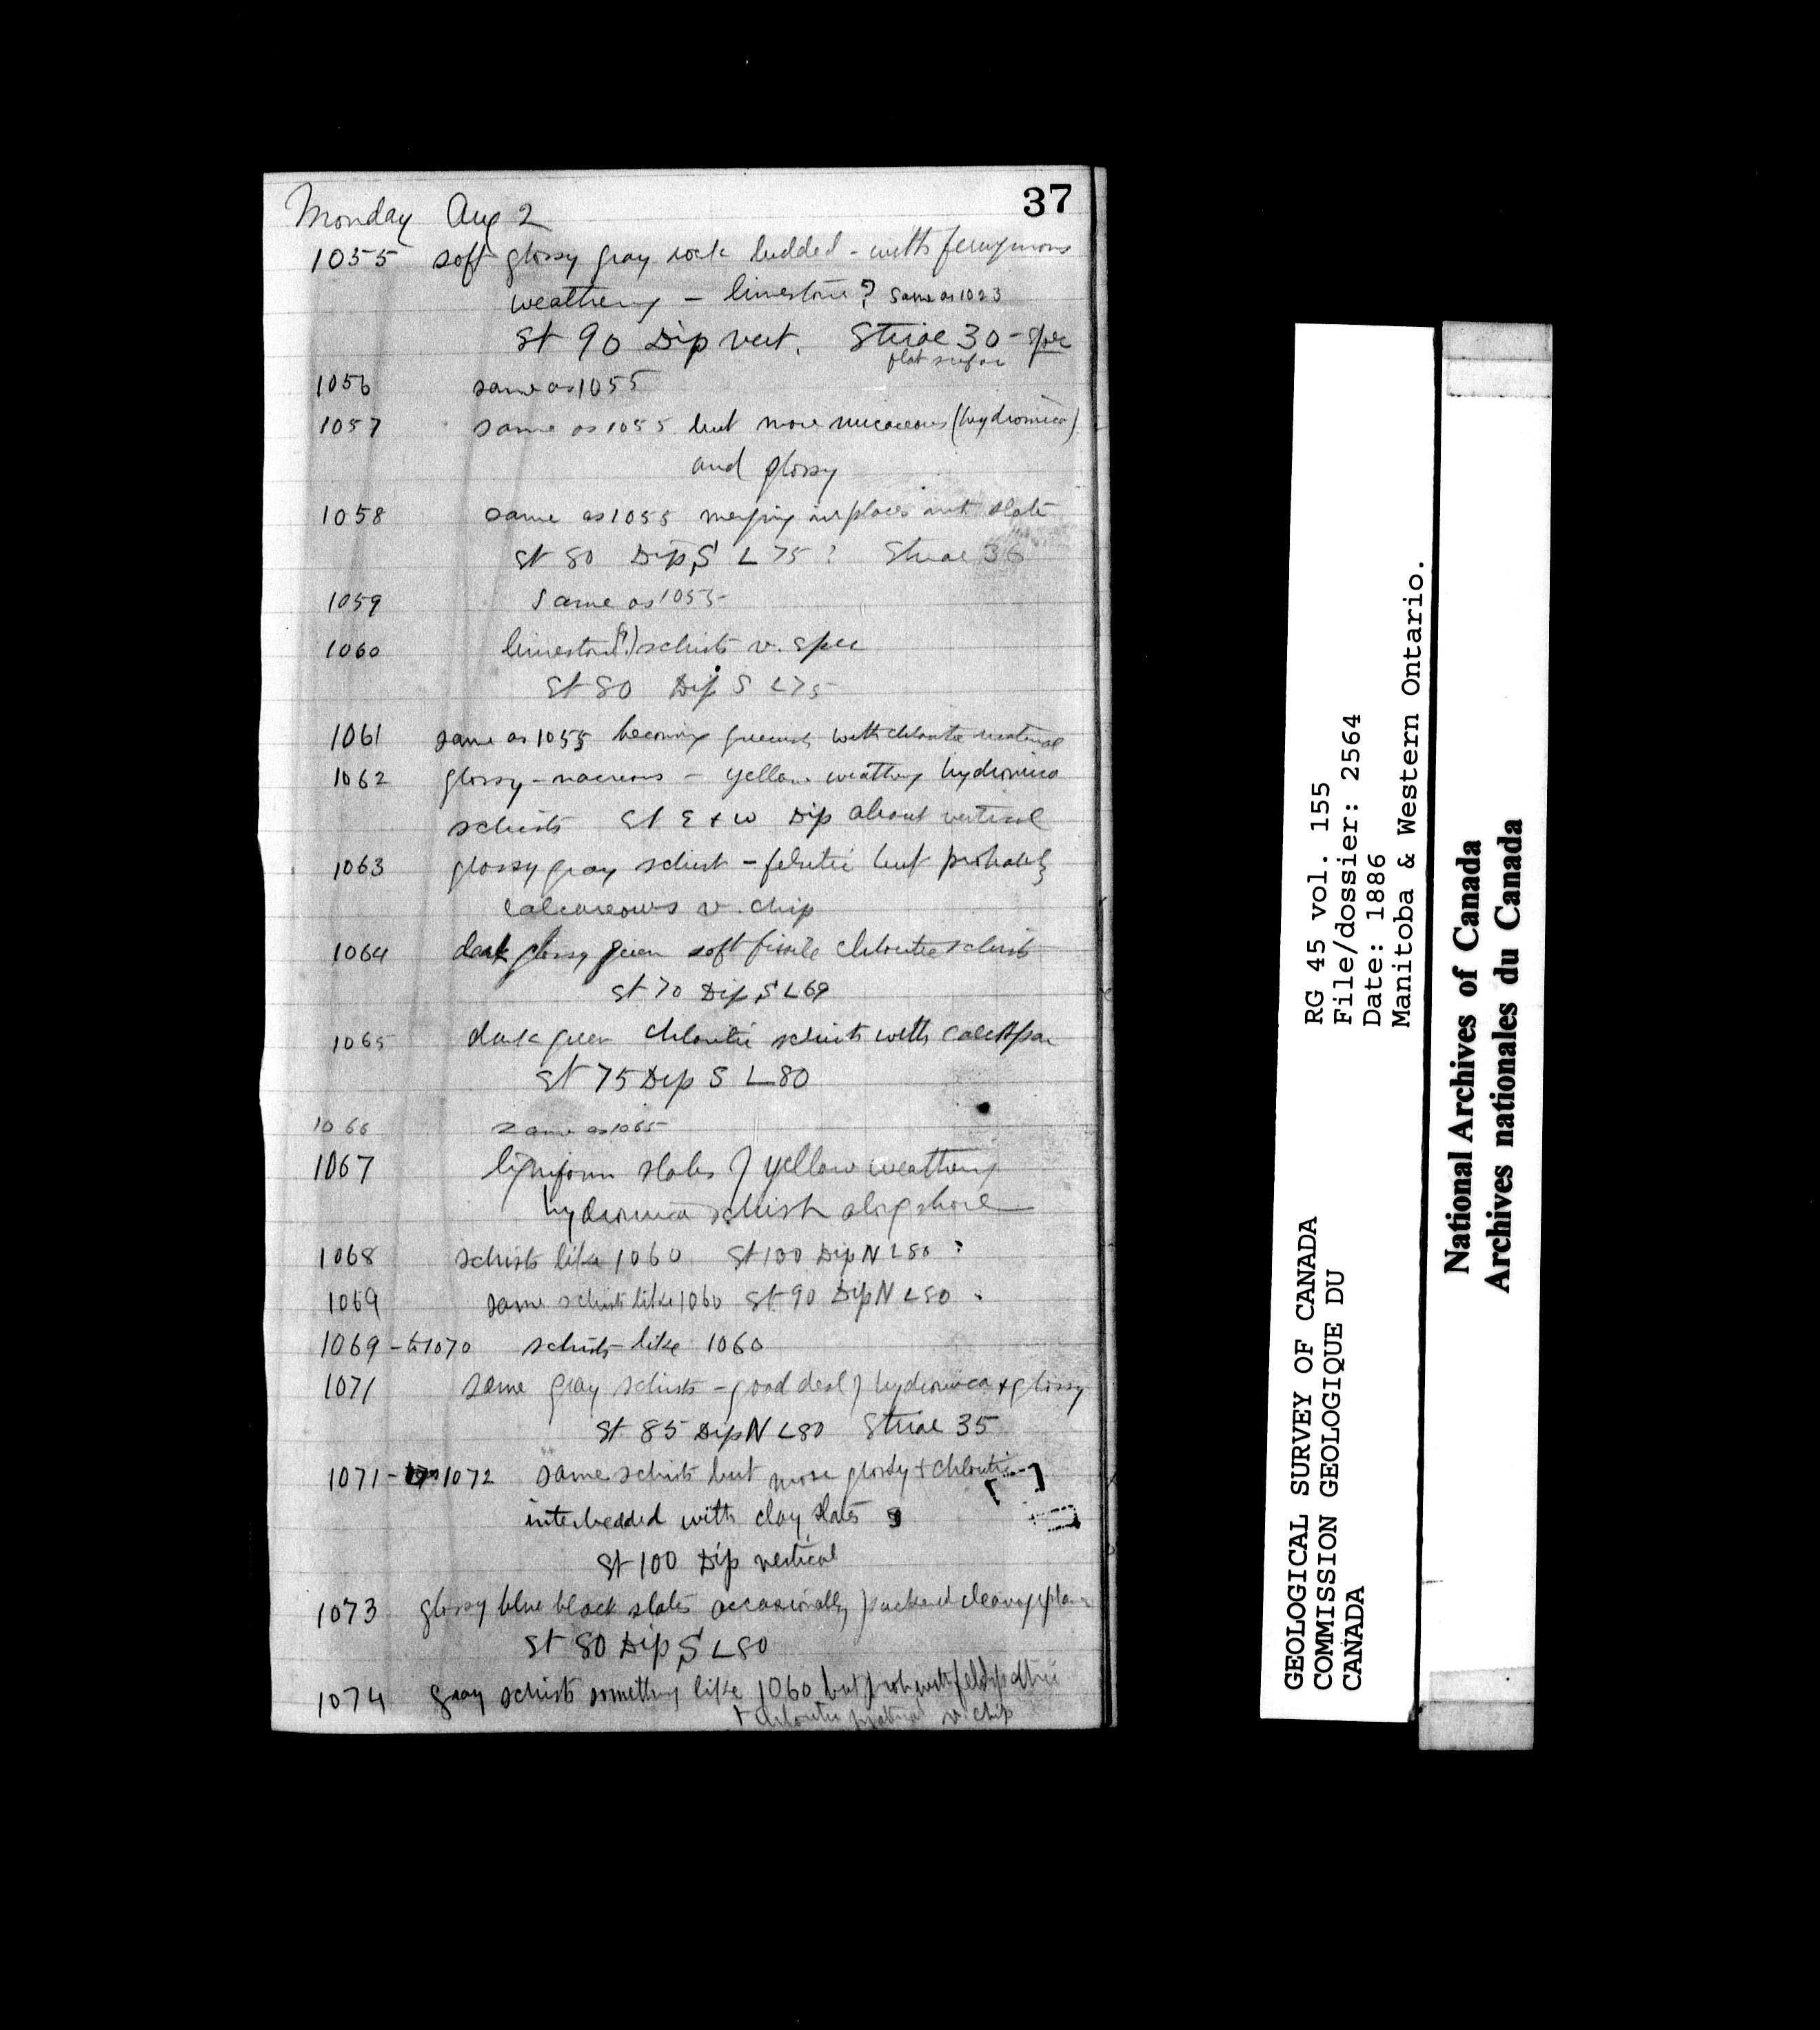 37
Monday Aug 2
1055 soft glossy gray rock bedded - with ferruginous
weathering - limestone? same as 1023
St 90 Dip vert. Striae 30 - spec
flat surface
1056 same as 1055
1057 same as 1055 but more micaceous (hydromica)
and glossy
1058 same as 1055 merging in places into slate
St 80 Dip S L 75 ? Striae 36
1059 Same as 1055
1060 limestone(?) schists v. spec
St 80 Dip S L 75
1061 same as 1055 becoming greenish with chloritic material
1062 glossy - nacreous - yellow weathering hydromica
schists St E + W Dip about vertical
1063 glossy gray schist - felsitic but probably
calcareous v. chip
1064 dark glossy green soft fissile chloritic schists
St 70 Dip S L 69
1065 dark green chloritic schists with calcspar
St 75 Dip S L 80
1066 same as 1065
1067 ligniform slabs of yellow weathering
hydromica schist along shore
1068 schists like 1060 St 100 Dip N L 80 ?
1069 same schists like 1060 St 90 Dip N L 80
1069 - to 1070 schists like 1060
1071 same gray schists - good deal of hydromica + glossy
St 85 Dip N L 80 Striae 35
1071 - 1072 same schists but more glossy + chloritic
interbedded with clay slates
St 100 Dip vertical
1073 glossy blue black slates occasionally puckered cleavage plane
St 80 Dip S L 80
1074 gray schists something like 1060 but prob with feldspathic
+ chloritic material v. chip
GEOLOGICAL SURVEY OF CANADA
COMMISSION GEOLOGIQUE DU
CANADA
RG 45 vol. 155
File/dossier: 2564
Date: 1886
Manitoba & Western Ontario.
National Archives of Canada
Archives nationales du Canada